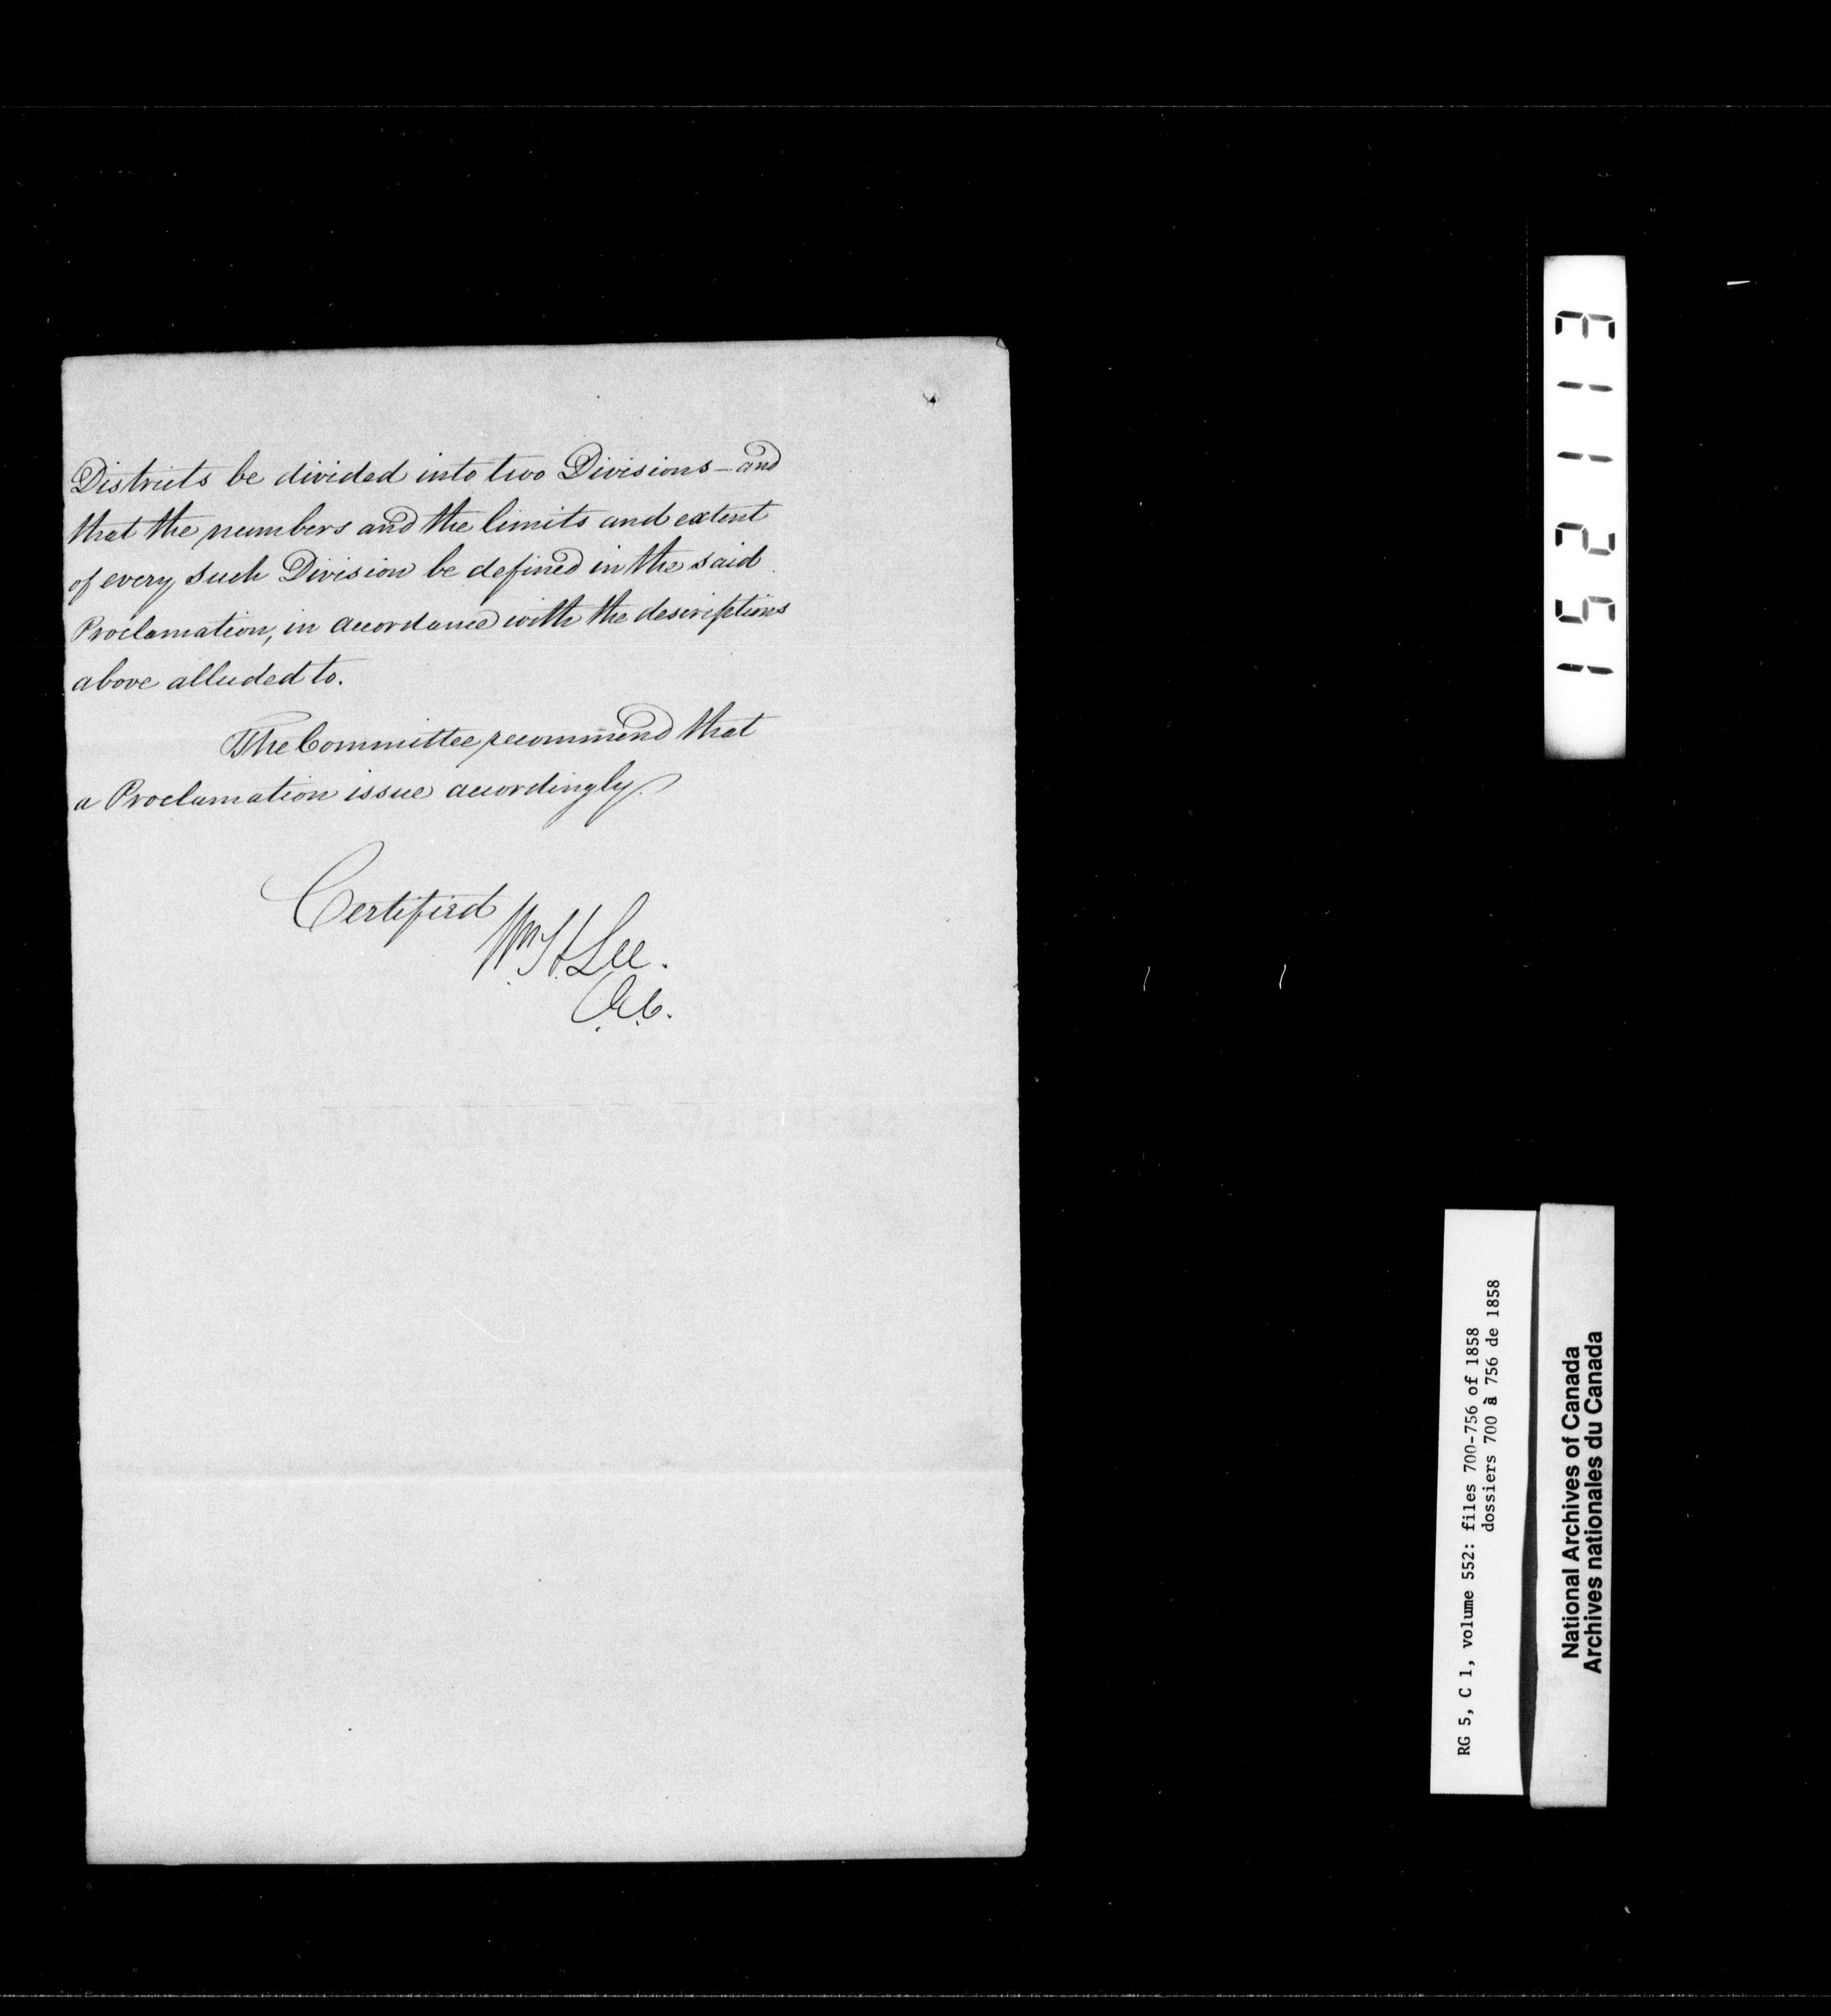 Districts be divided into two Divisions – and
that the numbers and the limits and extent
of every such Division be defined in the said
Proclamation, in accordance with the descriptions
above alluded to.
The Committee recommend that
a Proclamation issue accordingly.
Certified
Wm H. Lee.
C.E.C.
152113
RG 5, C 1, volume 552: files 700-756 of 1858
dossiers 700 à 756 de 1858
National Archives of Canada
Archives nationales du Canada